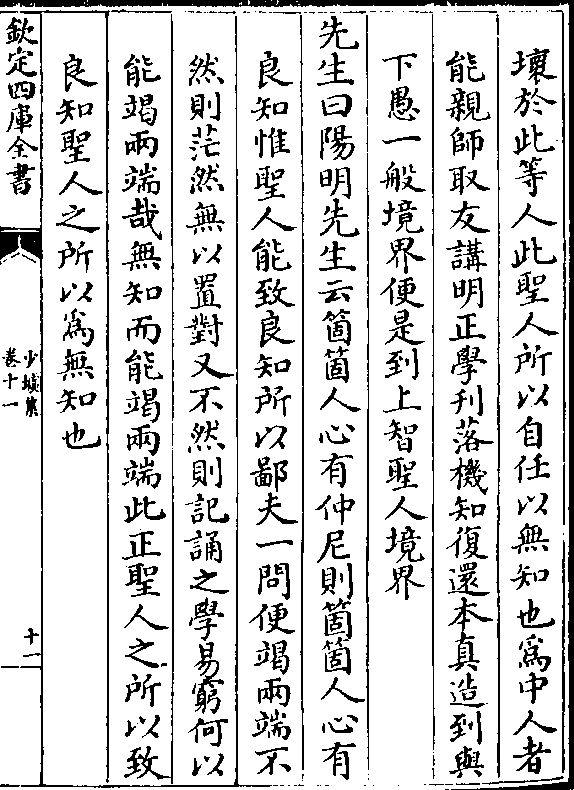 壞於此等人此聖人所以自任以無知也為中人者
能親師取友講明正學刋落機知復還本真造到與
下愚一般境界便是到上智聖人境界
先生曰陽明先生云箇箇人心有仲尼則箇箇人心有
良知惟聖人能致良知所以鄙夫一問便竭兩端不
然則茫然無以置對又不然則記誦之學易窮何以
能竭兩端哉無知而能竭兩端此正聖人之所以致
良知聖人之所以為無知也
欽定四庫全書
少墟集
卷十一
十一